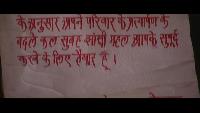 के अनुसार अपने परिवार के अत्यार्पण के
बदले कल सुबह सोंधी महल आपके सुपुर्द
करने के लिए तैयार हूँ ।